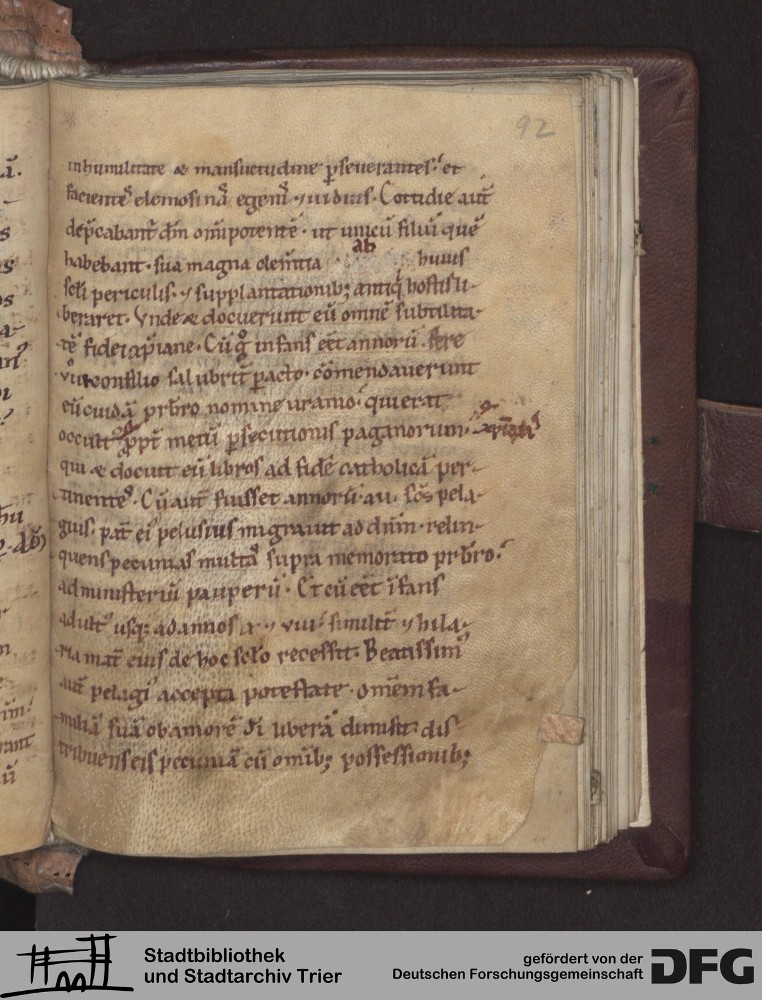 92
inhumilitate & mansuetudine pseuerantes. et
facientes elemosinā egenis
Cottidie aut̄
dep̄cabant̄ dm̄ om̄ipotentē. ut unicū filiū quē
ab
habebant. sua magna clem̄tia huius
sc̄li periculis. supplantationib; antiq̇ hostis li-
beraret. Vnde & docuerunt eū omnē subtilita-
tē fidei xp̄iane. Cūq̇ infans eēt annorū. fere
consilio salubrit̄ pacto. cōmendauerunt
eū cuidā prb̄ro nomine uranio. qui erat
occult᾽ ppt̄ metū psecutionis paganorum.
qui & docuit eū libros ad fidē catholicā per-
tinentes. Cū aut̄ fuisset annorū xv. sc̄s pela-
gius. pat̄ ei᾽ pelusius migrauit ad dn̄m. relin-
quens pecunias multas supra memorato prb̄ro.
administeriū pauperū. Et cū eēt īfans
adult᾽ usq; ad annos similit̄ hila-
ria mat̄ eius de hoc sc̄lo recessit. Beatissim᾽
aut̄ pelagi᾽ accepta potestate. omēm fa-
miliā suā ob amorē di liberā dimisit. dis-
tribuens eis pecuniā cū omib; possessionib;
Stadtbibliothek
und Stadtarchiv Trier
gefördert von der
Deutschen Forschungsgemeinschaft
DFG